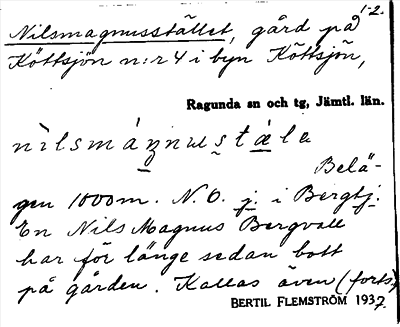 1-2.
Nilsmagnusstället, gård på
Köttsjön n:r 4 i byn Köttsjön,
Ragunda sn och tg, Jämtl. län.
Belä-
gen 1000 m. N.O. j. i Bergtj.
En Nils Magnus Bergvall
har för länge sedan bott
på gården. Kallas även (forts.)
BERTIL FLEMSTRÖM 1937.